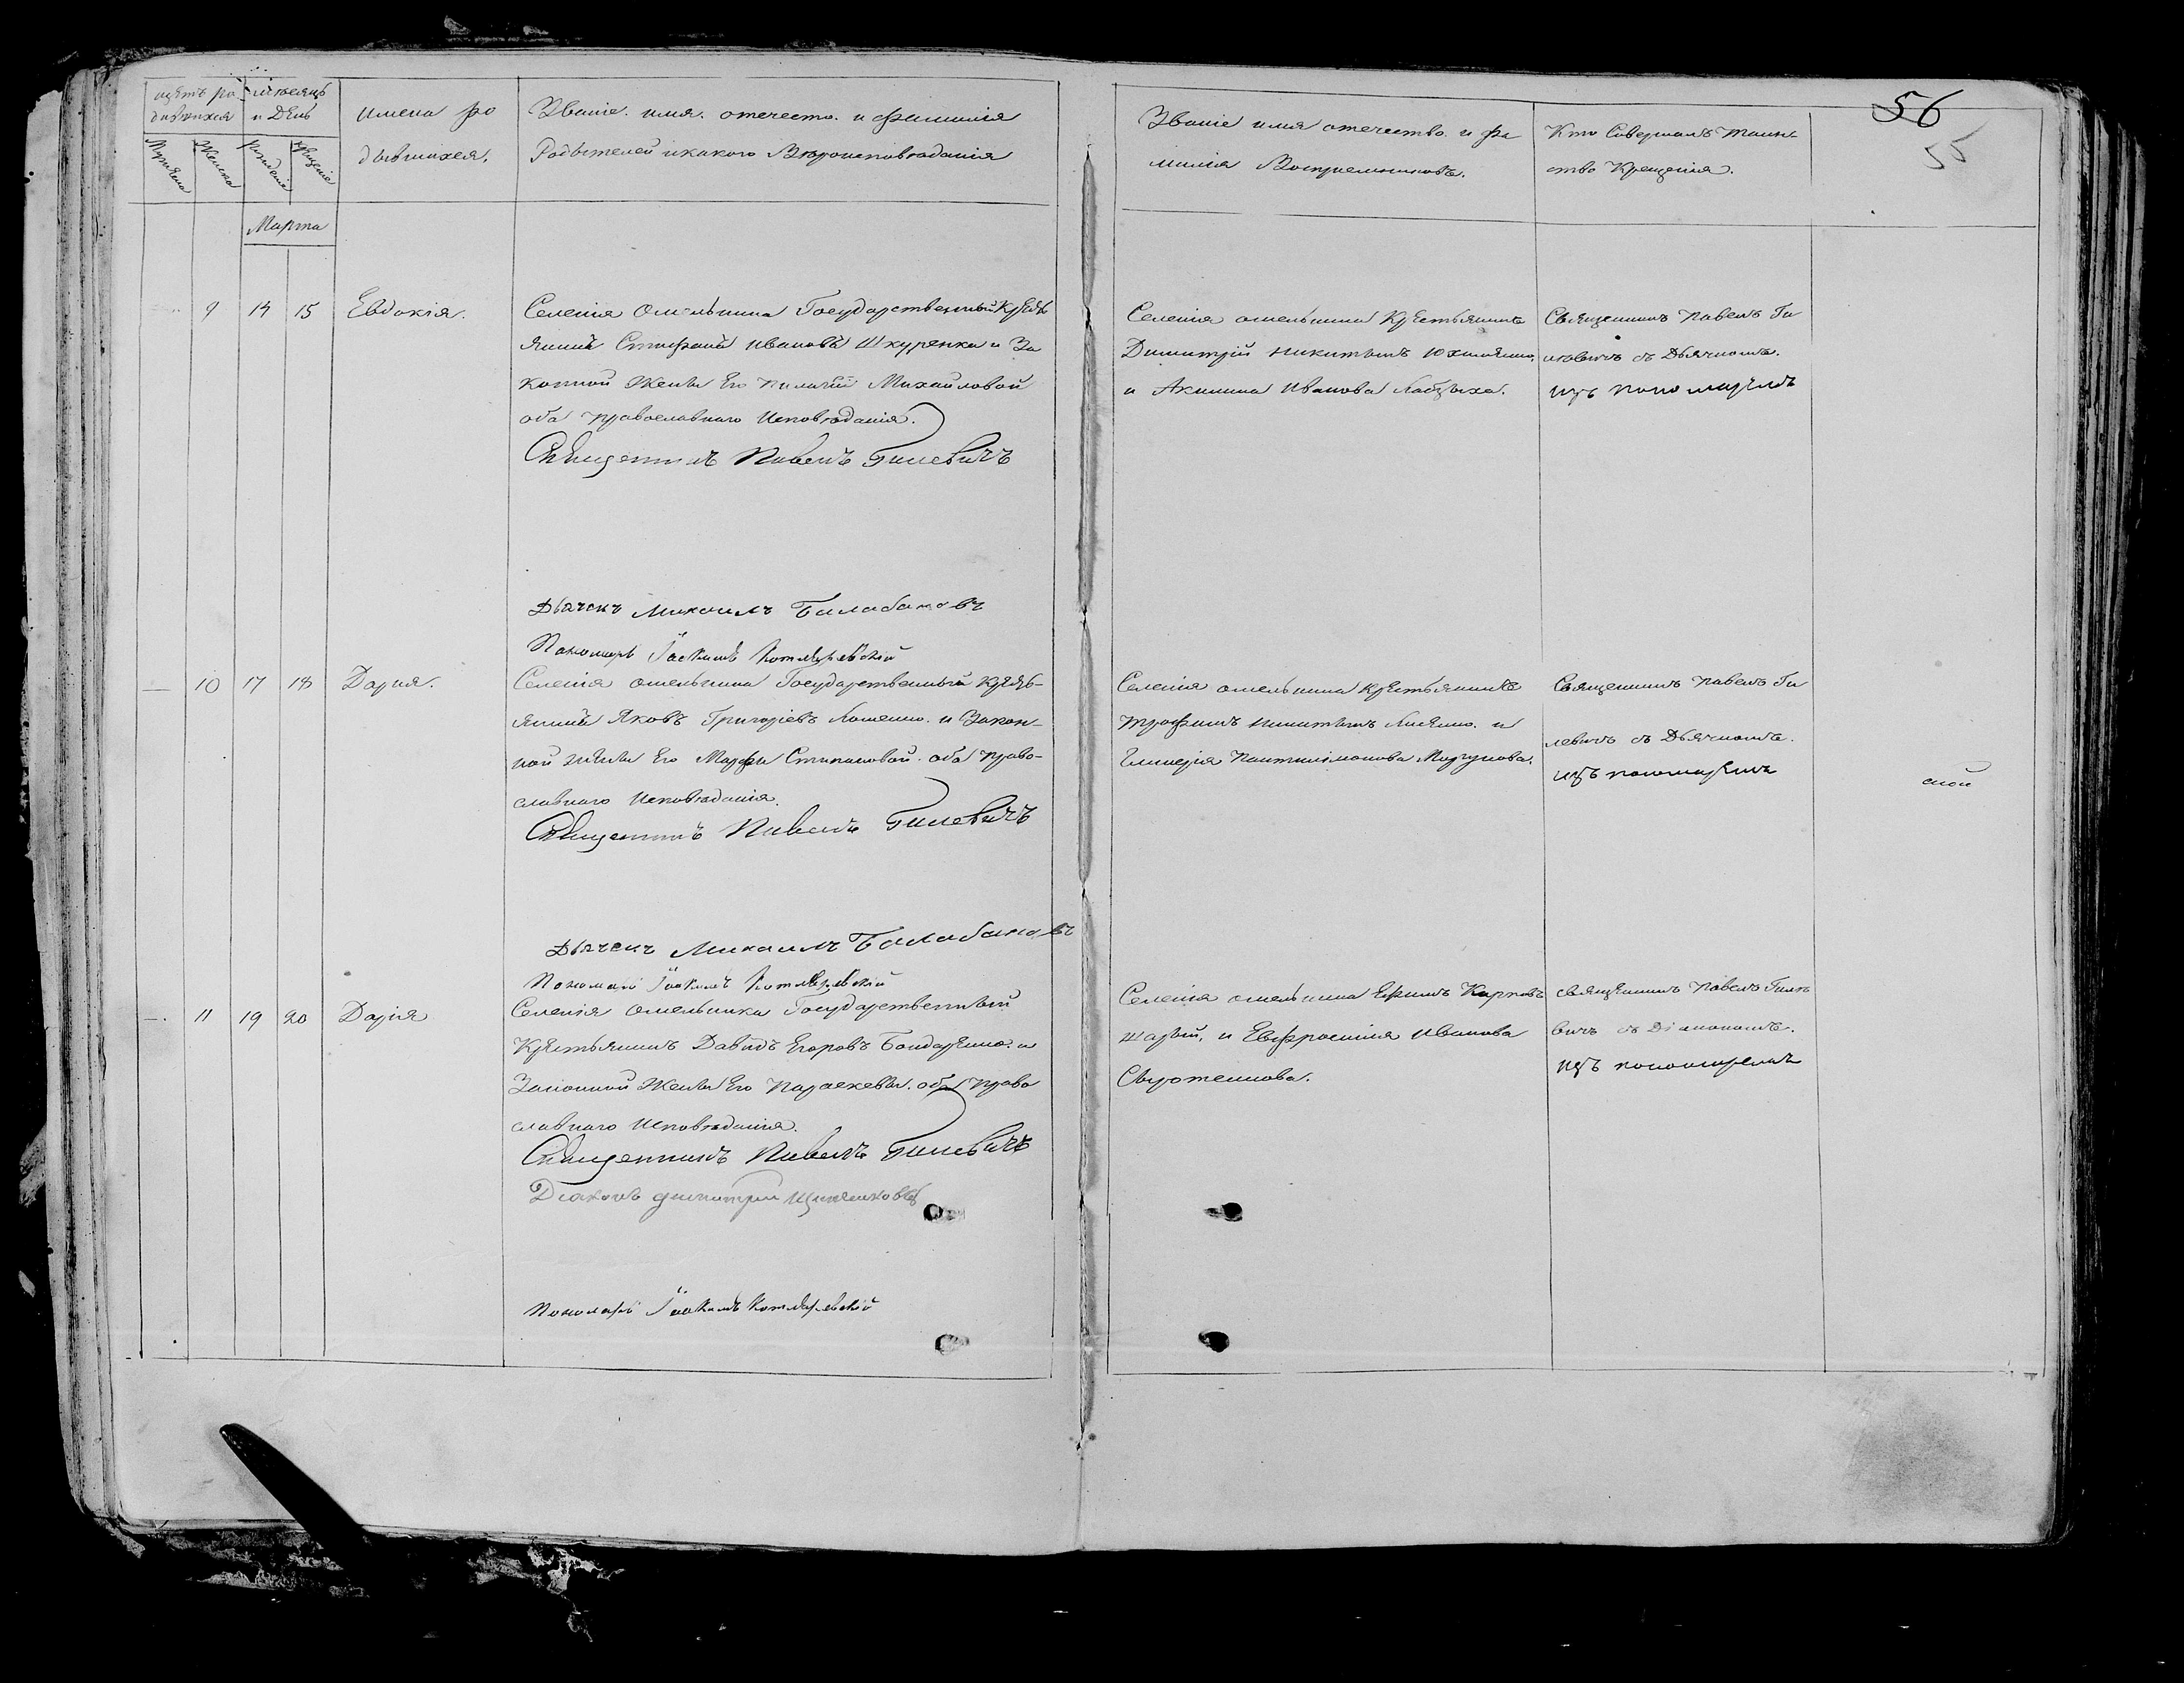 56
55
щетъ ро
дившихся
мѣсяцъ
и День
имена ро
дывшихся.
Званіе. имя. отечество. и фамилія
Родытелей и какого Вѣроисповѣданія
Званіе имя отечество. и фа
милія Воспріемниковъ.
Кто Совершалъ Таин
ство Крещенія.
Мужеска
Женска
рожденіе
крещеніе
Марта
9 14 15 Евдокія.
Селенія Омельника Государственный Крестъ
янинъ Стефанъ Ивановъ Шкуренко и За
конной Жены Его Михайловой
оба православнаго Исповѣданія.
Священникъ Павелъ Гилевичъ
Дьячекъ Михаилъ Балабановъ
Пономарь Іоакимъ Котляревскій
Селенія омельника Крестьянинъ
Димитрій Никитинъ
и Акилина Иванова
Священникъ Павелъ Ги
левичъ съ Дьячкомъ.
изъ пономаремъ
— 10 17 18 Дарія.
Селенія омельника Государственный Кресть-
янинъ Яковъ Григоріевъ и Закон-
ной жены Его Марфы Стипановой. оба право-
славнаго Исповѣданія.
Священникъ Павелъ Гилевичъ
Дьячекъ Михаилъ Балабановъ
Пономарь Іоакимъ Котляревскій
Селенія омельника Крестьянинъ
Трофимъ Никитинъ и
Гликерія Пантилімонова
Священникъ Павелъ Ги
левичъ съ Дьячкомъ.
изъ пономаремъ
ской
—. 11 19 20 Дарія
Селенія Омельника Государственный
Крестьянинъ Давидъ Егоровъ Бондаренко. и
Законной Жены Его Параскевы. оба право
славнаго Исповѣданія.
Священникъ Павелъ Гилевичъ
Діаконъ Димитрій
Пономарь Іоакимъ Котляревскій
Селенія омельника Ефимъ Карповъ
и Евфросинія Иванова
Священникъ Павелъ Гиле
вичъ съ Діакономъ.
изъ пономаремъ